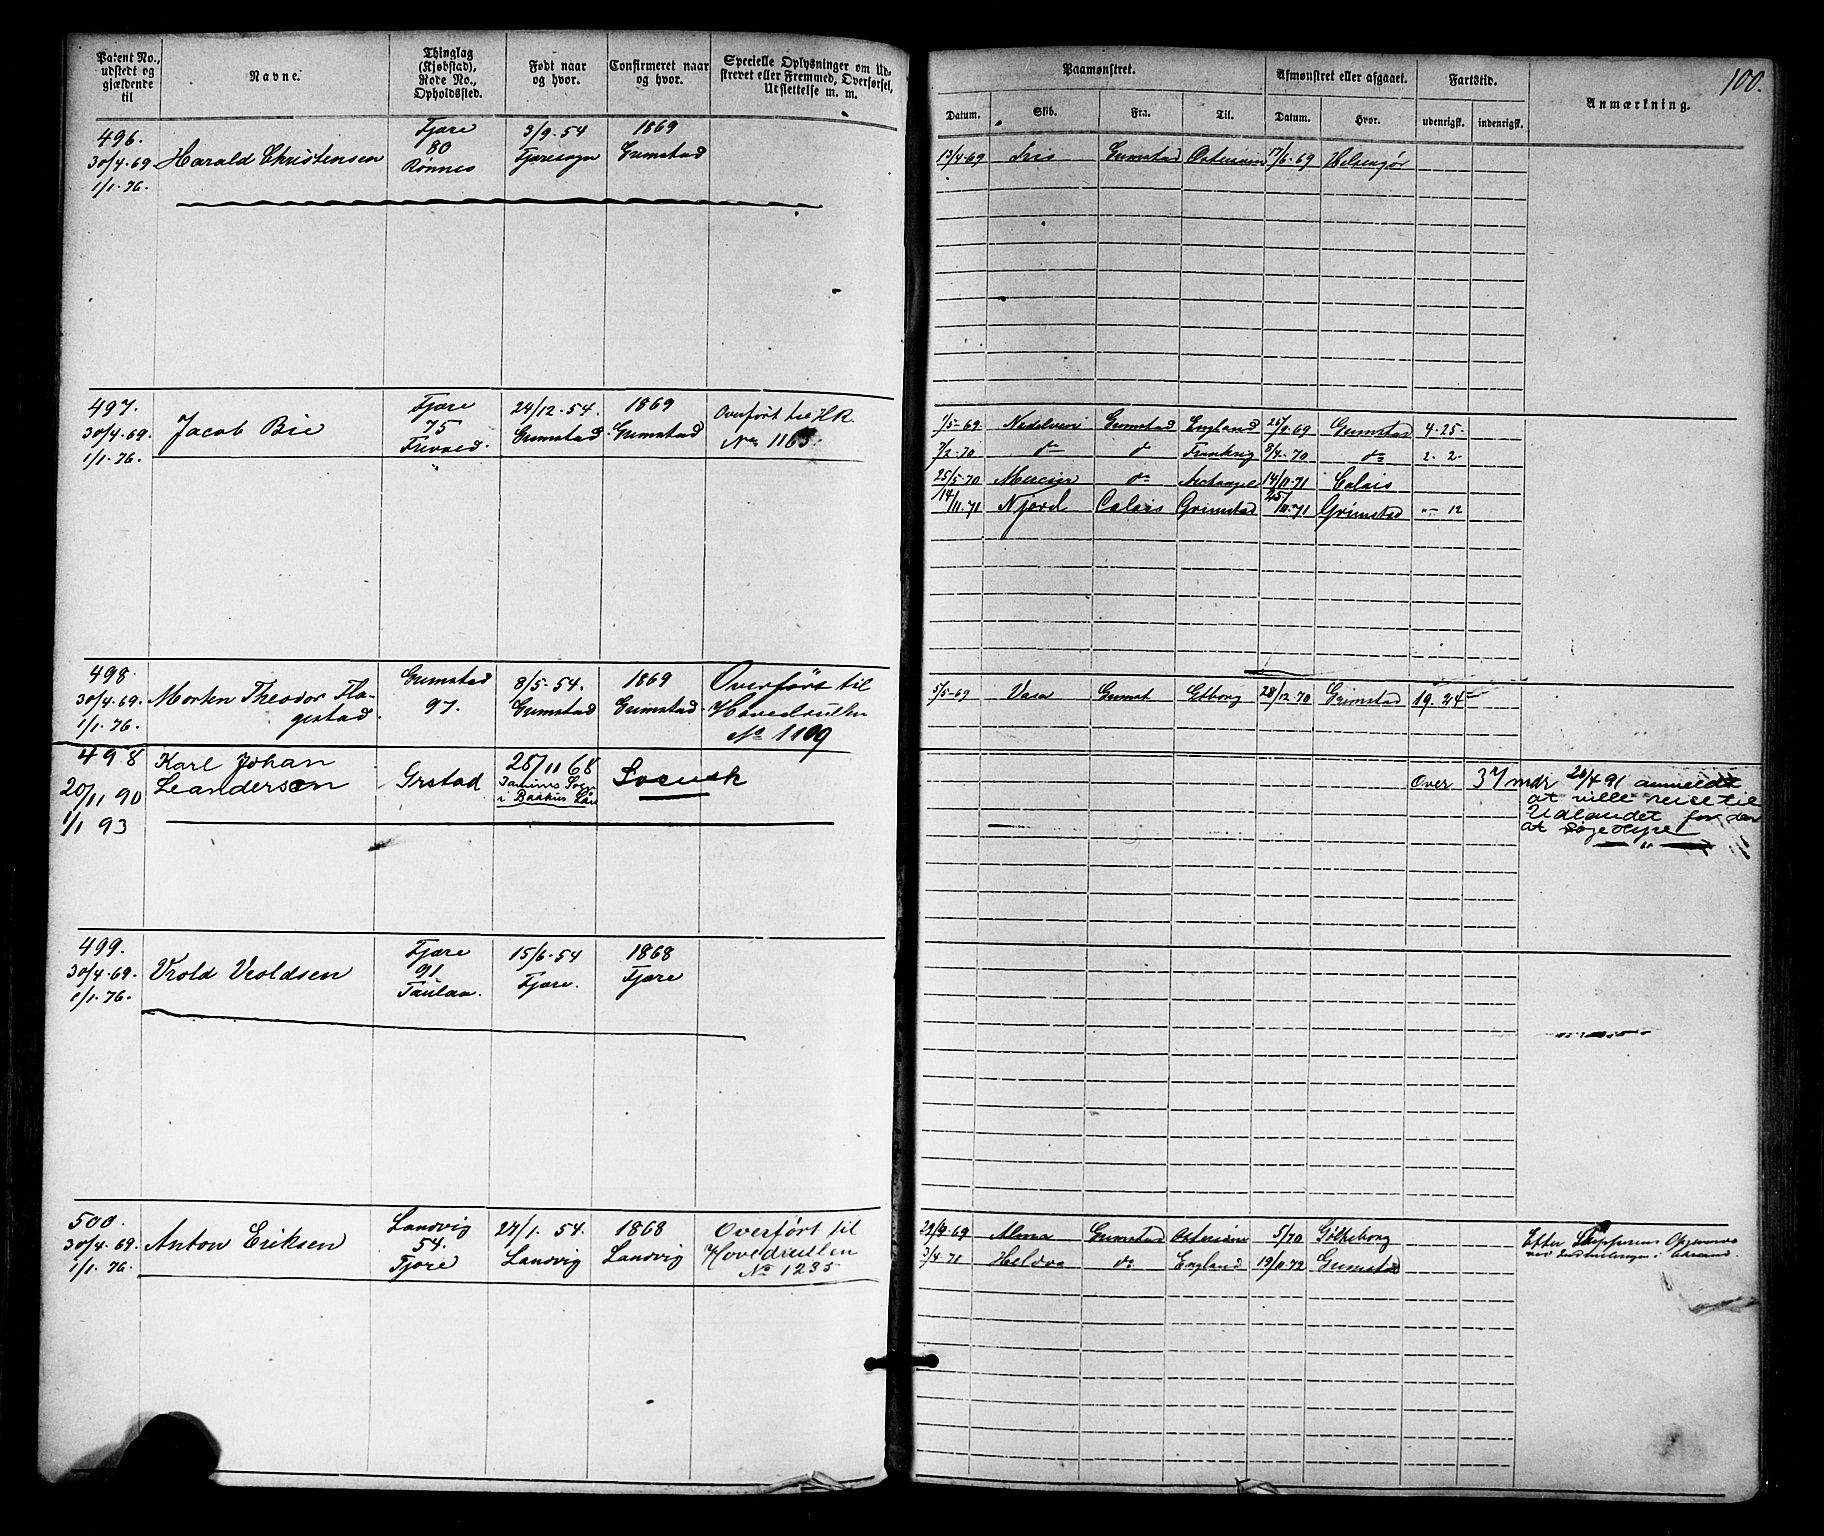 Patent No., udstedt og gjældende til
Navne.
Thinglag (Kjøbstad), Rode No., Opholdssted.
Født naar og hvor.
Confirmeret naar og hvor.
Specielle Oplysninger om Udstrevet eller Fremmed, Overførsel, Udslettelse m. m.
Paamønstret.
Datum.
Skib.
Fra.
Til.
Afmønstret eller afgaaet.
Datum.
Hvor.
Fartstid.
udenrigsk.
indenrigsk.
Anmærkning.
100.
496.
30/4-69
1/1-76.
Harald Christensen
Fjære
80
Rønnes
3/9-54
Fjæresogn
1869
Grimstad
13/4-69 Iris Grimstad Østersøen 17/6-69 Helsingør
497.
30/4-69.
1/1-76.
Jacob Bie
Fjære
75
24/12-54.
Grimstad
1869
Grimstad
Overført til HR
No 1163
1/5-69 Grimstad England 69 Grimstad 4-25
7/2-70 do d Frankrig 9/4-70 do 2-2
25/5-70 do Archangel 14/11-71 Calais
14/11-71 Njord Calais Grimstad 25/11-71 Grimstad "-12
498.
30/4-69.
1/1-76.
Morten Theodor Fla-
gestad
Grimstad
97.
8/5-54.
Grimstad
1869
Grimstad
Overført til
Hovedrullen
No 1109
5/5-69 Grimst Gtborg 28/12-70 Grimstad 19.24
498
20/11 90
1/1 93
Karl Johan
Leandersen
Grstad
28/11 68
Svensk
Over 37 mdr
28/4 91 anmeldt
at ville reise til
Udlandet for der
at søge Hyre
499.
30/4-69.
1/1-76.
Vrold Vroldsen
Fjære
91
15/6-54
Fjære.
1868
Fjære
500.
30/4-69.
1/1-76.
Anton Eriksen
Landvig
54.
Fjære
27/1-54.
Landvig
1868
Landvig
Overført til
Hovedrullen
No 1235
29/4-69 Alma Grimstad Østersøen 5/70 Gøtheborg
3/4-71 do England 19/11-72 Grimstad
Efter Skipperens Opgivende